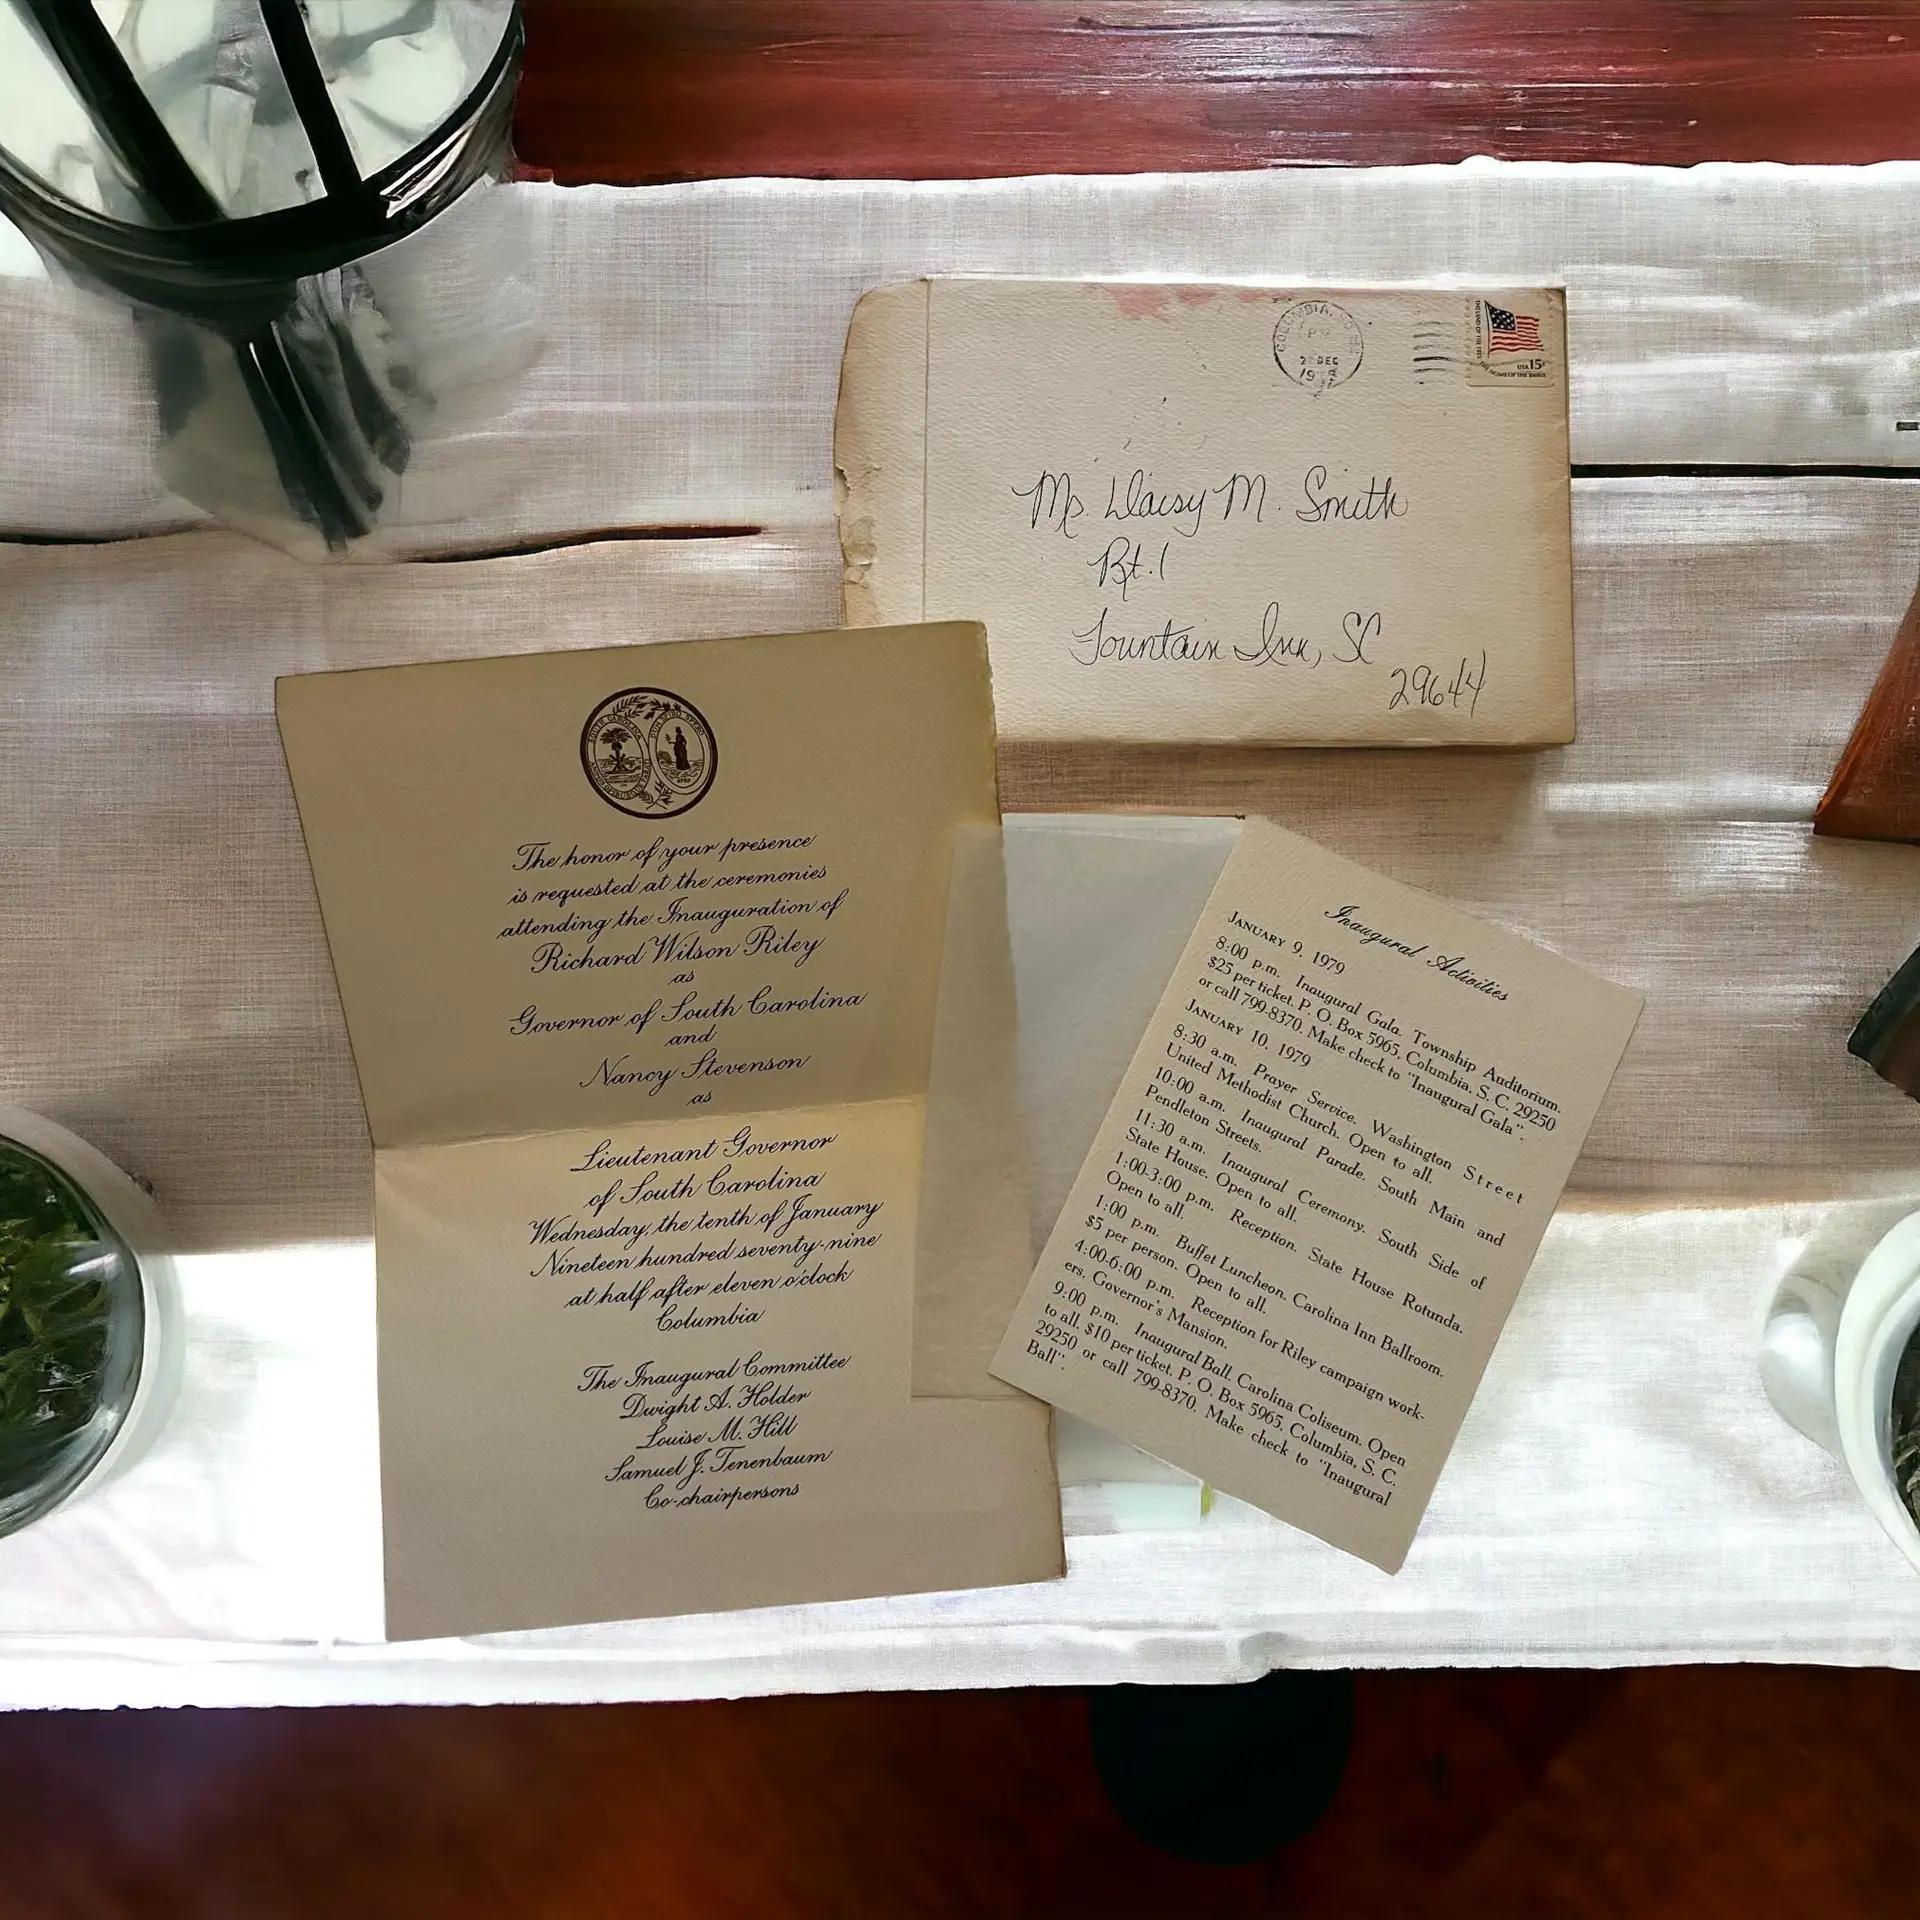 COLUMBIA,
PM
DEC
THE LAND OF THE FREE
USA 15c
THE HOME OF THE BRAVE
Ms. Daisy M. Smith
Rt. 1
Fountain Inn, SC
29644
SOUTH CAROLINA
DUM SPIRO SPERO
ANIMIS OPIBUSQUE PARATI
SPES
The honor of your presence
is requested at the ceremonies
attending the Inauguration of
Richard Wilson Riley
as
Governor of South Carolina
and
Nancy Stevenson
as
Lieutenant Governor
of South Carolina
Wednesday, the tenth of January
Nineteen hundred seventy-nine
at half after eleven o'clock
Columbia
The Inaugural Committee
Dwight A. Holder
Louise M. Hill
Samuel J. Tenenbaum
Co-chairpersons
Inaugural Activities
JANUARY 9, 1979
8:00 p.m. Inaugural Gala. Township Auditorium.
$25 per ticket. P. O. Box 5965, Columbia, S. C. 29250
or call 799-8370. Make check to "Inaugural Gala".
JANUARY 10, 1979
8:30 a.m. Prayer Service. Washington Street
United Methodist Church. Open to all.
10:00 a.m. Inaugural Parade. South Main and
Pendleton Streets.
11:30 a.m. Inaugural Ceremony. South Side of
State House. Open to all.
1:00-3:00 p.m. Reception. State House Rotunda.
Open to all.
1:00 p.m. Buffet Luncheon. Carolina Inn Ballroom.
$5 per person. Open to all.
4:00-6:00 p.m. Reception for Riley campaign work-
ers. Governor's Mansion.
9:00 p.m. Inaugural Ball. Carolina Coliseum. Open
to all. $10 per ticket. P. O. Box 5965, Columbia, S. C.
29250 or call 799-8370. Make check to "Inaugural
Ball".